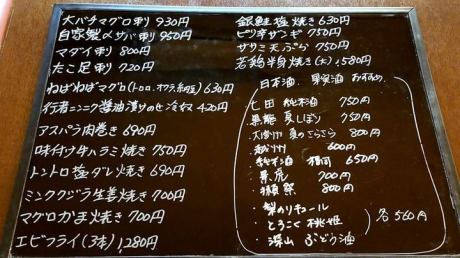 大バチマグロ刺 930円
自家製〆サバ刺 950円
マダイ刺 800円
たこ足刺 720円
ねばねばマグロ(トロロ、オクラ、納豆) 630円
行者ニンニク醤油漬けのせ冷奴 420円
アスパラ肉巻き 690円
味付牛ハラミ焼き 750円
トントロ塩ダレ焼き 690円
ミンククジラ生姜焼き 700円
マグロかま焼き 700円
エビフライ(3本) 1,280円
銀鮭塩焼き 630円
ピリ辛ザンギ 750円
ササミ天ぷら 750円
若鶏半身焼き(大) 1,580円
日本酒、果実酒 おすすめ
・七田 純米酒 750円
・黒龍 夏しぼり 750円
夏のさらさら 800円
600円
純米酒 650円
700円
・獺祭 800円
・梨のリキュール
・とろこく桃姫
・深山 ぶどう酒
各 560円